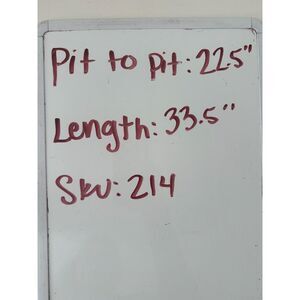 Pit to pit: 22.5"
Length: 33.5"
SKU: 214